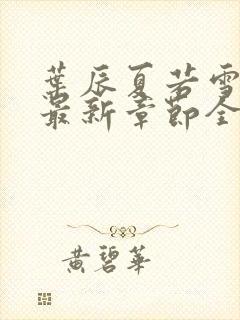 葉辰夏若雪
最新章節全
黄碧華